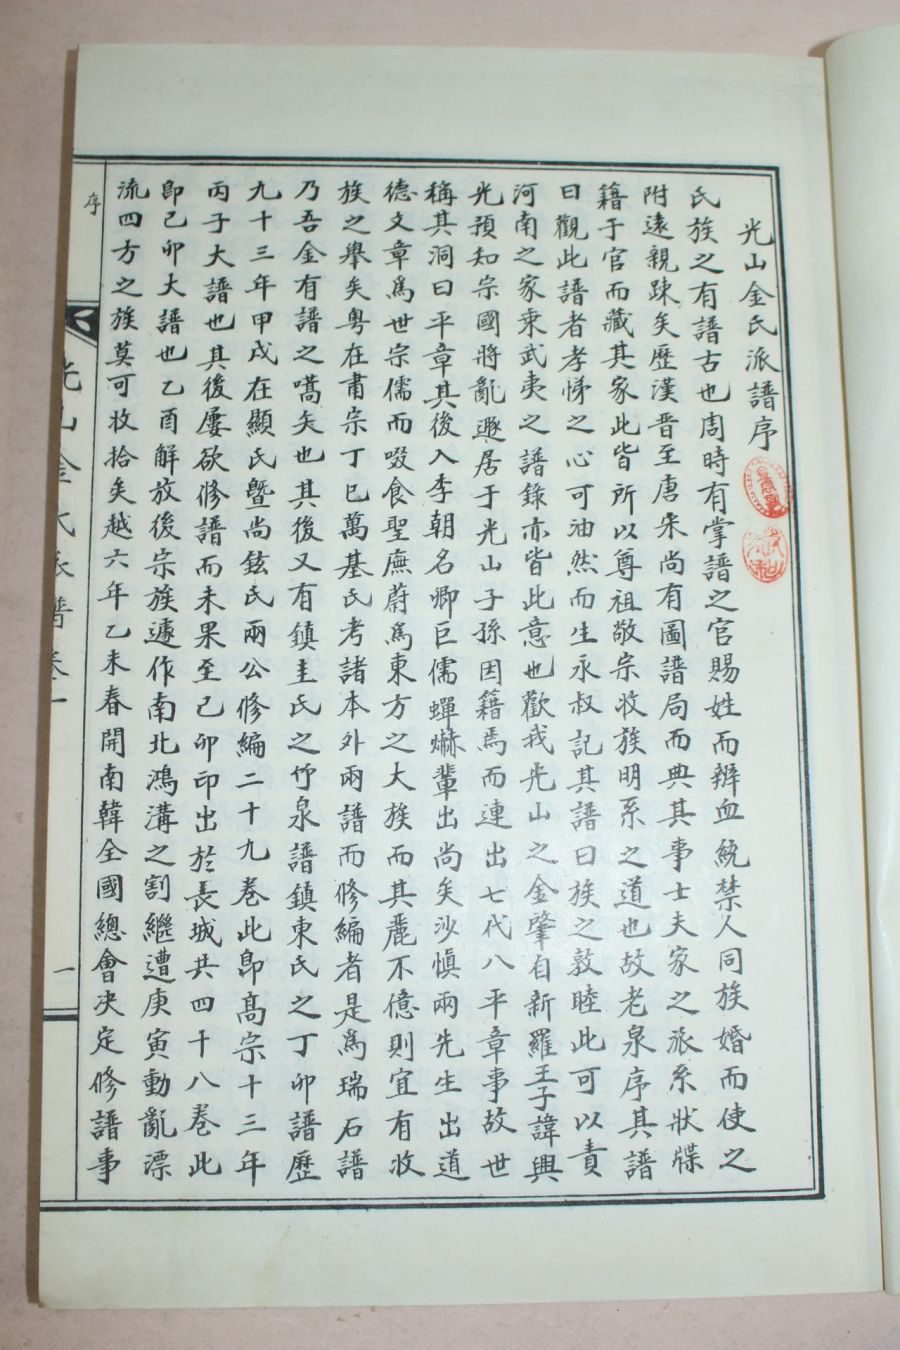 光山金氏派譜序
氏族之有譜古也周時有掌譜之官賜姓而辨血統禁人同族婚而使之
附遠親踈矣歷漢晋至唐宋尚有圖譜局而典其事士夫家之派系狀牒
籍于官而藏其家此皆所以尊祖敬宗收族明系之道也故老泉序其譜
曰觀此譜者孝悌之心可油然而生永叔記其譜曰族之敦睦此可以責
河南之家東武夷之譜錄亦皆此意也歡我光山之金肇自新羅王子諱興
光預知宗國將亂遯居于光山子孫因籍焉而連出七代八平章事故世
稱其洞曰平章其後入李朝名卿巨儒蟬爀輩出尚矣沙愼兩先生出道
德文章爲世宗儒而啜食聖廡蔚爲東方之大族而其麗不億則宜有收
族之擧矣粤在肅宗丁巳萬基氏考諸本外兩譜而修編者是爲瑞石譜
乃吾金有譜之嚆矢也其後又有鎭圭氏之竹泉譜鎭東氏之丁卯譜歷
九十三年甲戌在顯氏曁尚鉉氏兩公修編二十九卷此卽高宗十三年
丙子大譜也其後屢欲修譜而未果至己卯印出於長城共四十八卷此
卽己卯大譜也乙酉解放後宗族遽作南北鴻溝之割繼遭庚寅動亂漂
流四方之族莫可收拾矣越六年乙未春開南韓全國總會决定修譜事
序
光山金氏派譜卷一
一